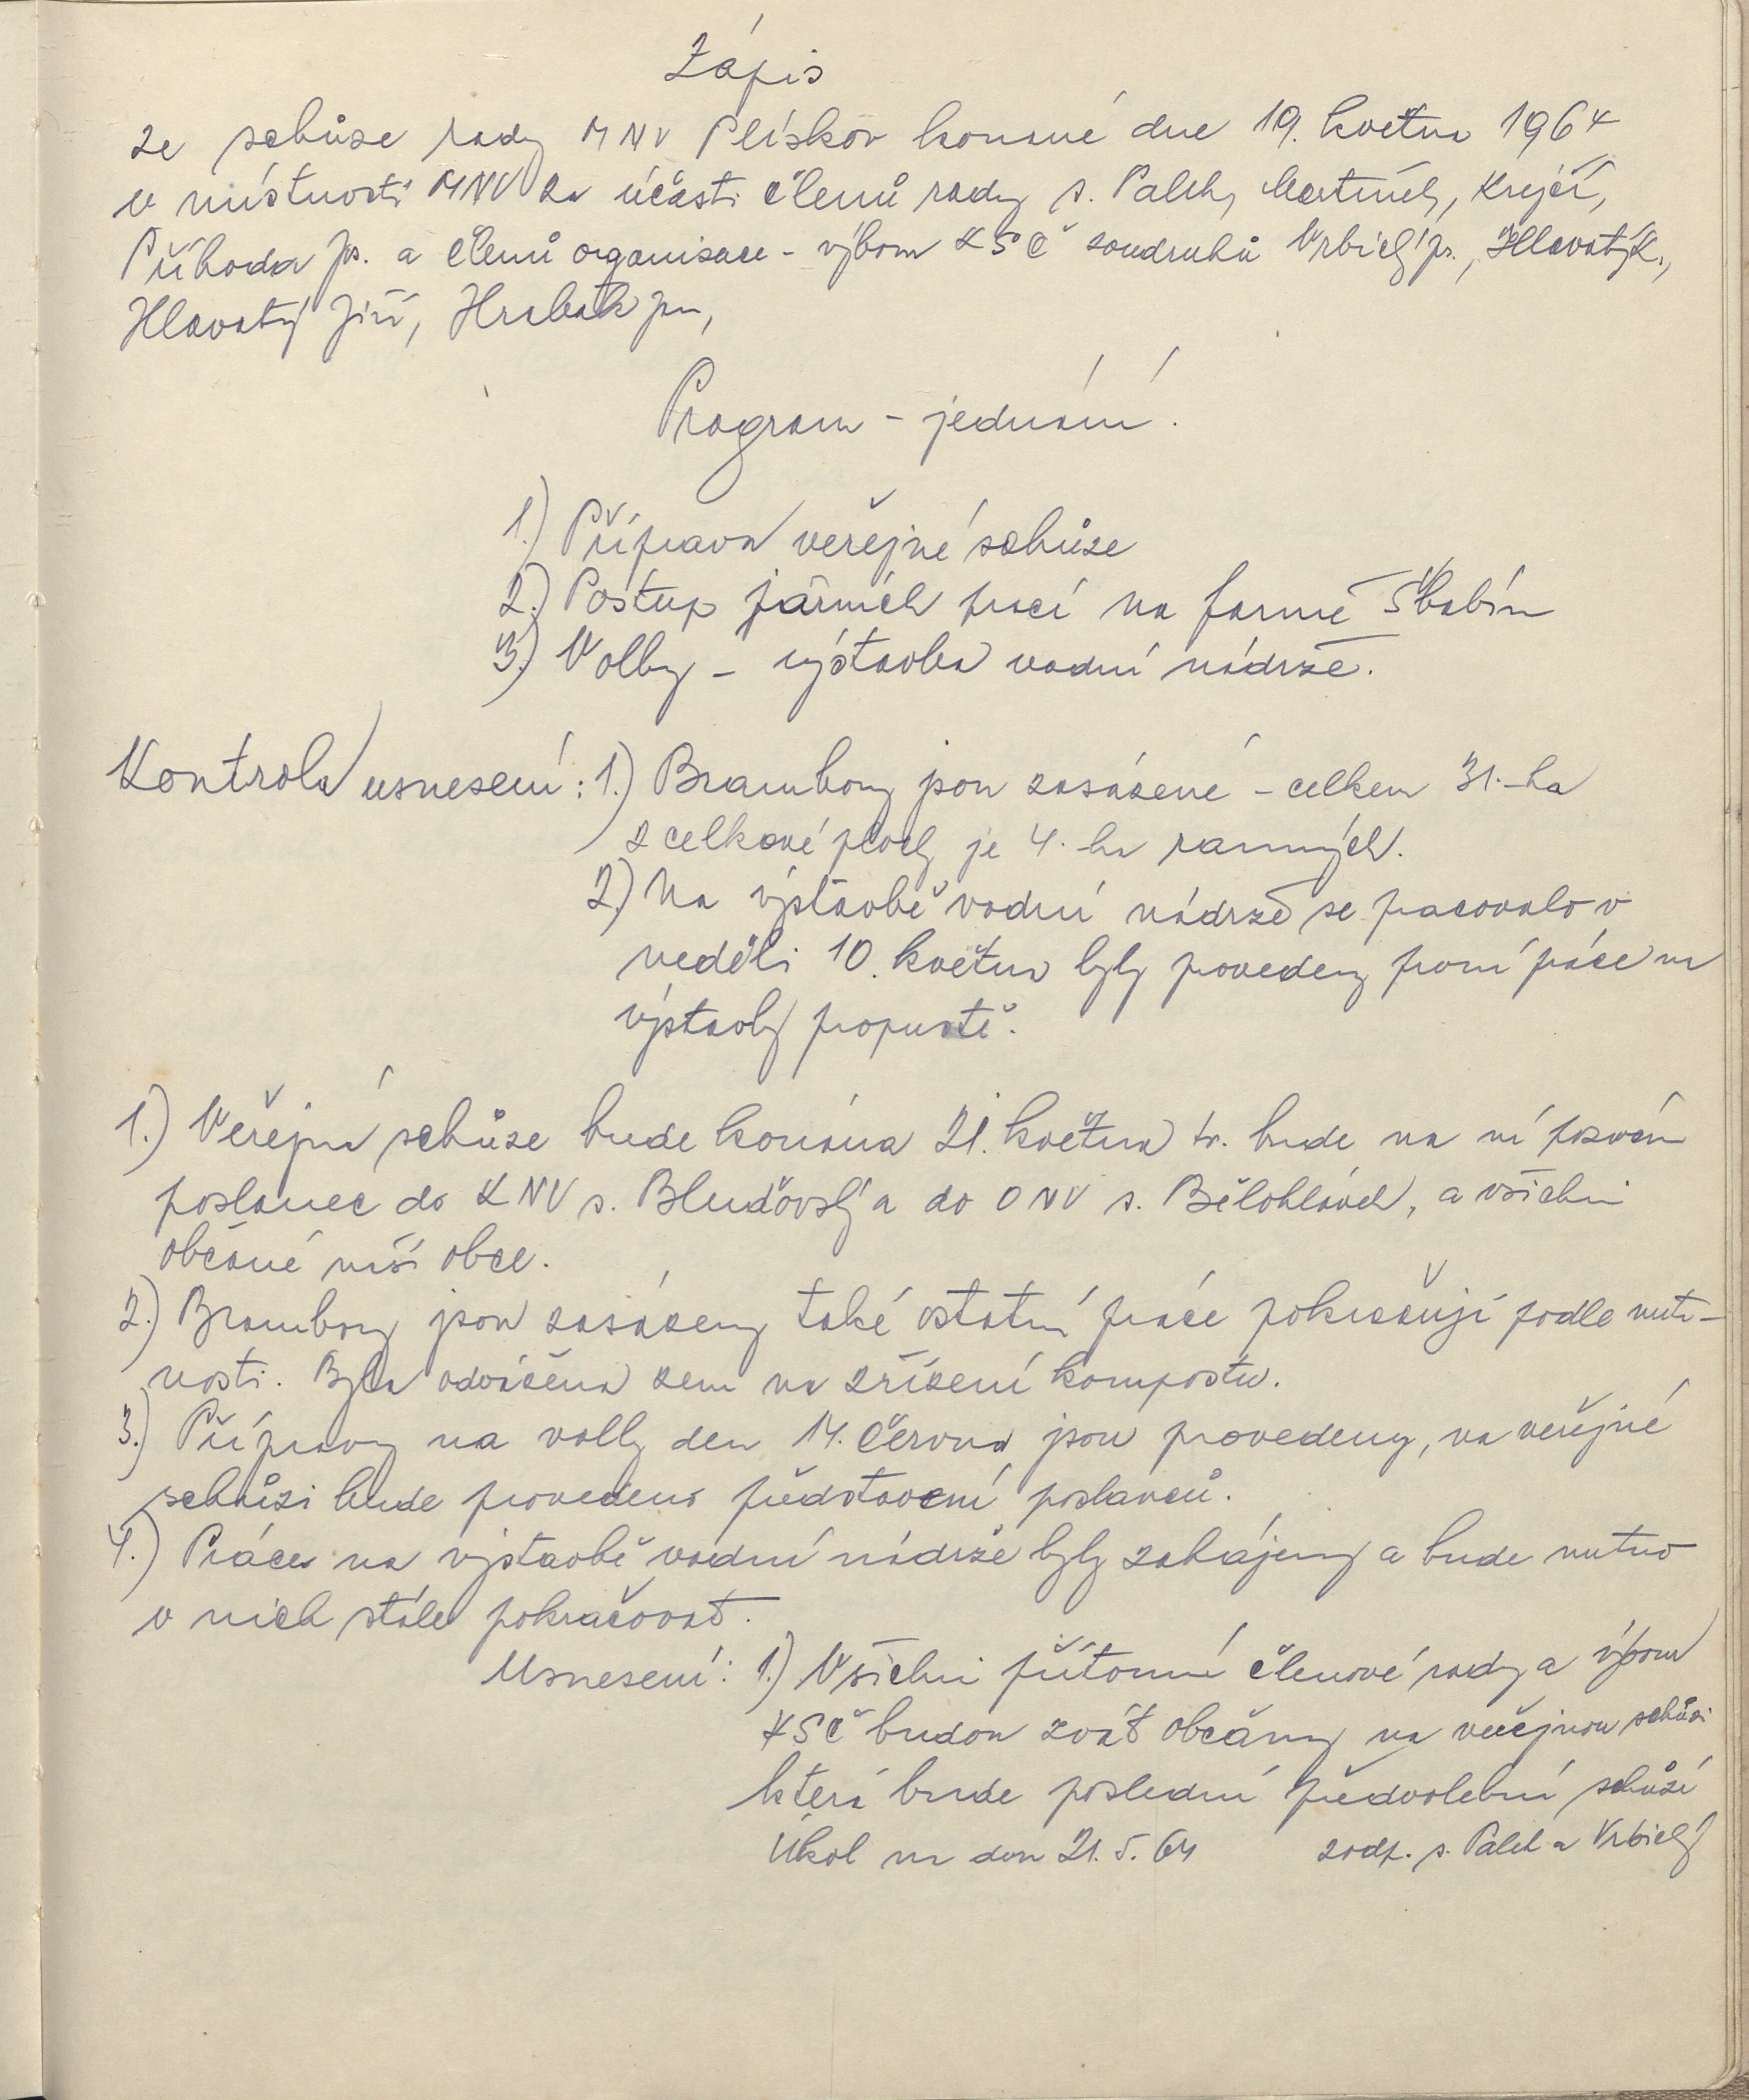 Zápis
ze schůze rady MNV Plískov konané dne 19. května 1964
v místnosti MNV za účasti členů rady s. Palch, Martínek, Krejčí,
Příhoda js. a členů organisace - výboru KSČ soudruhů Vrbický js., Hlavatý K.,
Hlavatý Jiří, Hrabák jn,
Program - jednání.
1.) Příprava veřejné schůze
2.) Postup jarních prací na farmě Štabín
3.) Volby - výstavba vodní nádrže.
Kontrola usnesení: 1.) Brambory jsou zasázené - celkem 31.-ha
z celkové plochy je 4. ha ranných.
2.) Na výstavbě vodní nádrže se pracovalo v
neděli 10. května byly provedeny první práce na
výstavby propustě.
1.) Veřejná schůze bude konána 21. května tr. bude na ní pozván
poslanec do KNV s. Bluďovský a do ONV s. Bělohlávek, a všichni
občané naší obce.
2.) Brambory jsou zasázeny také ostatní práce pokračují podle nut-
nosti. Byla odvážena zem na zřízení kompostu.
3.) Přípravy na volby den 14. června jsou provedeny, na veřejné
schůzi bude provedeno představení poslanců.
4.) Práce na výstavbě vodní nádrže byly zahájeny a bude nutno
v nich stále pokračovat.
Usnesení: 1.) Všichni přítomní členové rady a výboru
KSČ budou zvát občany na veřejnou schůzi
která bude poslední předvolební schůzí
Úkol na den 21. 5. 64 zodp. s. Palch a Vrbický